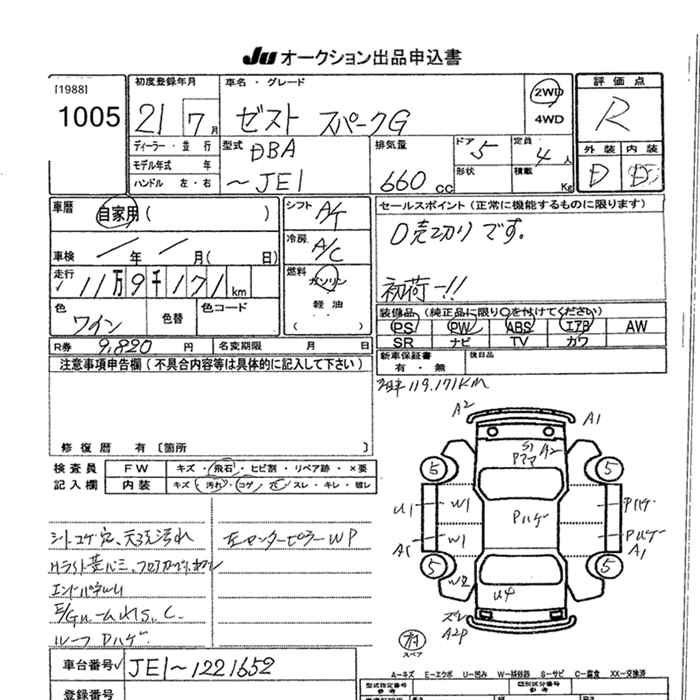 JU オークション出品申込書
[1988]
1005
初度登録年月
21 7月
車名・グレード
ゼスト スパークG
2WD
4WD
評価点
R
ディーラー・並行
モデル年式 年
ハンドル 左・右
型式
DBA
～JE1
排気量
660cc
ドア 5
形状
定員 4人
積載 Kg
外装 内装
D D
車歴
自家用( )
車検 年 月( 日)
走行
11万9千171km
色
ワイン
色替
色コード
シフト A/T
冷房 A/C
燃料
ガソリン
軽油
( )
セールスポイント(正常に機能するものに限ります)
D売切りです。
初荷ー!!
装備品 (純正品に限り○を付けてください)
PS PW ABS エアB AW
SR ナビ TV カワ
R券 9,820円 名変期限 月 日
新車保証書
有・無
後日品
注意事項申告欄(不具合内容等は具体的に記入して下さい)
修復歴 有〔箇所 〕
119.171KM
検査員
記入欄
FW キズ・飛石・ヒビ割・リペア跡・×要
内装 キズ・汚れ・コゲ・穴・スレ・キレ・破レ
シートコゲ穴、天張汚れ
左センターピラーWP
エンドパネルU
ルーフPハゲ
A2 A1
S1
A2
5 5
U1 W1 Pハゲ Pハゲ
A1 W1 Pハゲ A1
5 5
W2
U4
ズレ
A2P
スペア
車台番号 JE1～1221652
登録番号
A…キズ E…エクボ U…凹み W…補修跡 S…サビ C…腐食 XX…交換済
型式指定番号
類別区分番号